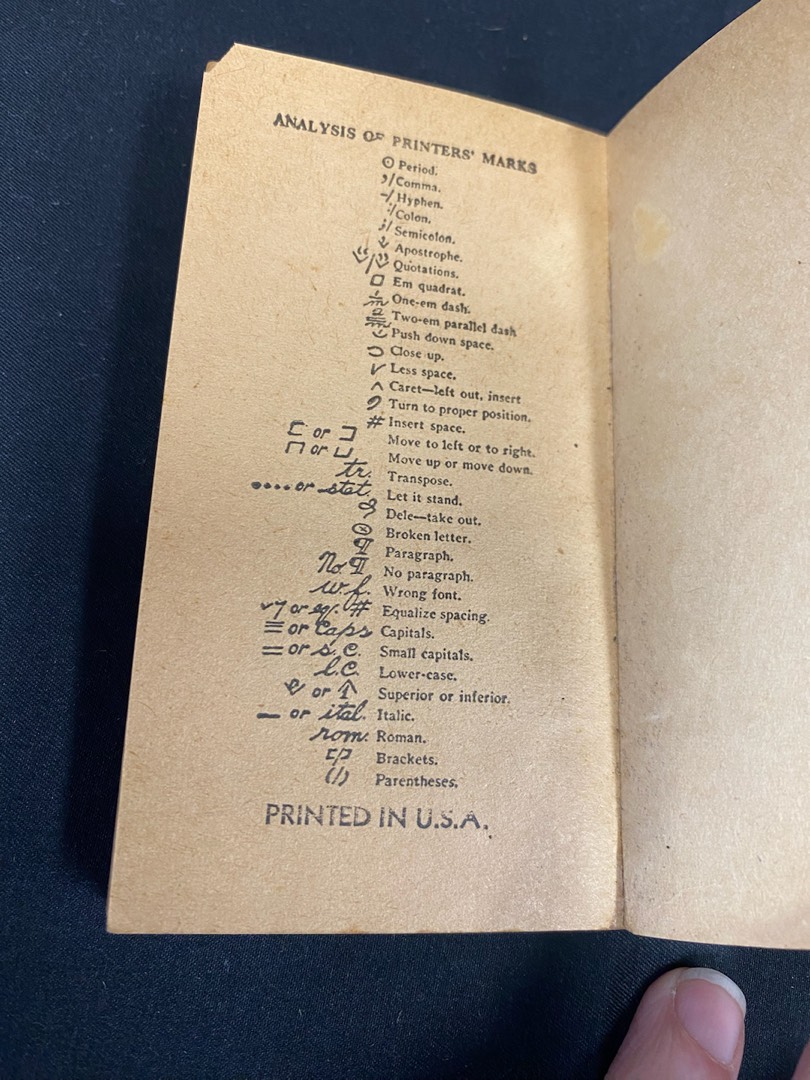 ANALYSIS OF PRINTERS' MARKS
⊙ Period.
,/ Comma.
-/ Hyphen.
:/ Colon.
;/ Semicolon.
Apostrophe.
Quotations.
□ Em quadrat.
1/m One-em dash.
2/m Two-em parallel dash
Push down space.
Close up.
Less space.
^ Caret—left out, insert
Turn to proper position.
# Insert space.
[ or ] Move to left or to right.
⊓ or ⊔ Move up or move down.
tr. Transpose.
.... or stet. Let it stand.
Dele—take out.
⊗ Broken letter.
¶ Paragraph.
No ¶ No paragraph.
w.f. Wrong font.
or eq. # Equalize spacing.
≡ or Caps Capitals.
= or s.c. Small capitals.
l.c. Lower-case.
or Superior or inferior.
— or ital. Italic.
rom. Roman.
[/] Brackets.
(/) Parentheses.
PRINTED IN U.S.A.